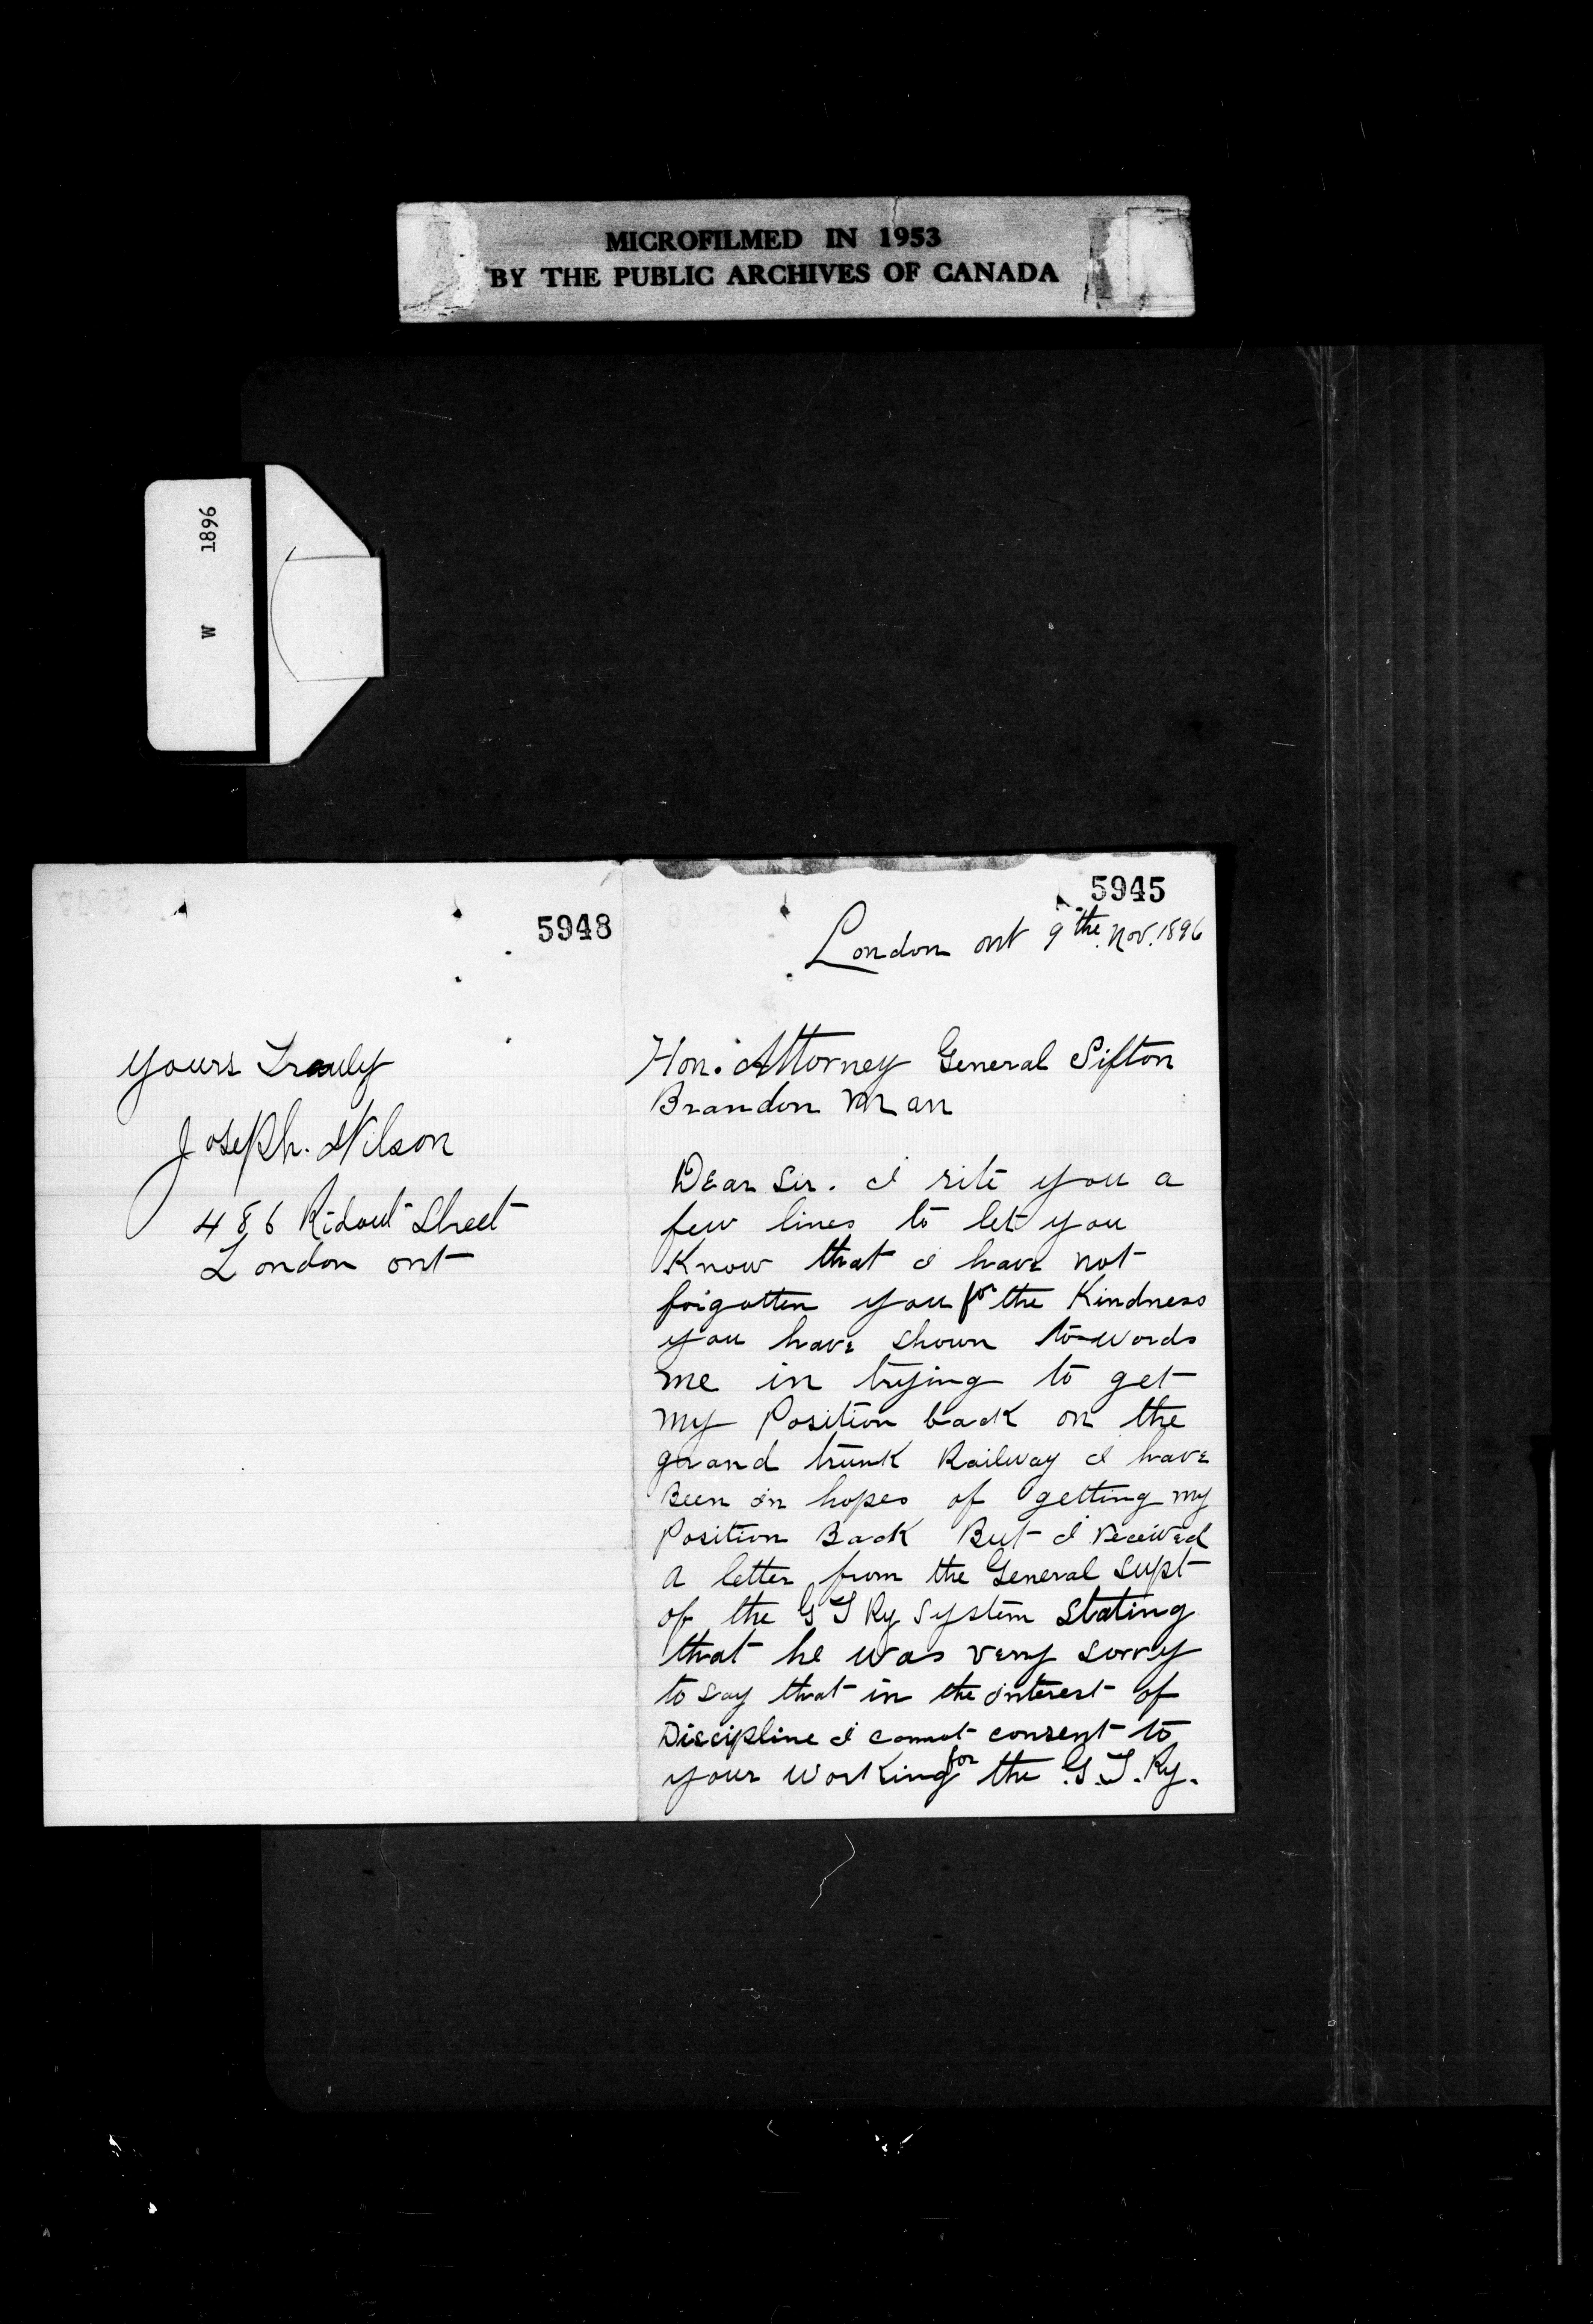 MICROFILMED IN 1953
BY THE PUBLIC ARCHIVES OF CANADA
W 1896
5948
yours Trauly
Joseph. Wilson
486 Ridout Street
London ont
5945
London ont 9the. Nov. 1896
Hon. Attorney General Sifton
Brandon Man
Dear Sir. I rite you a
few lines to let you
Know that I have not
forgotten you for the Kindness
you have shown towords
me in trying to get
my Position back on the
grand trunk Railway I have
Been in hopes of getting my
Position Back But I received
a letter from the General Supt
of the G T Ry System Stating
that he was very sorry
to say that in the interest of
Discipline I connot consent to
your Working for the G.T.Ry.